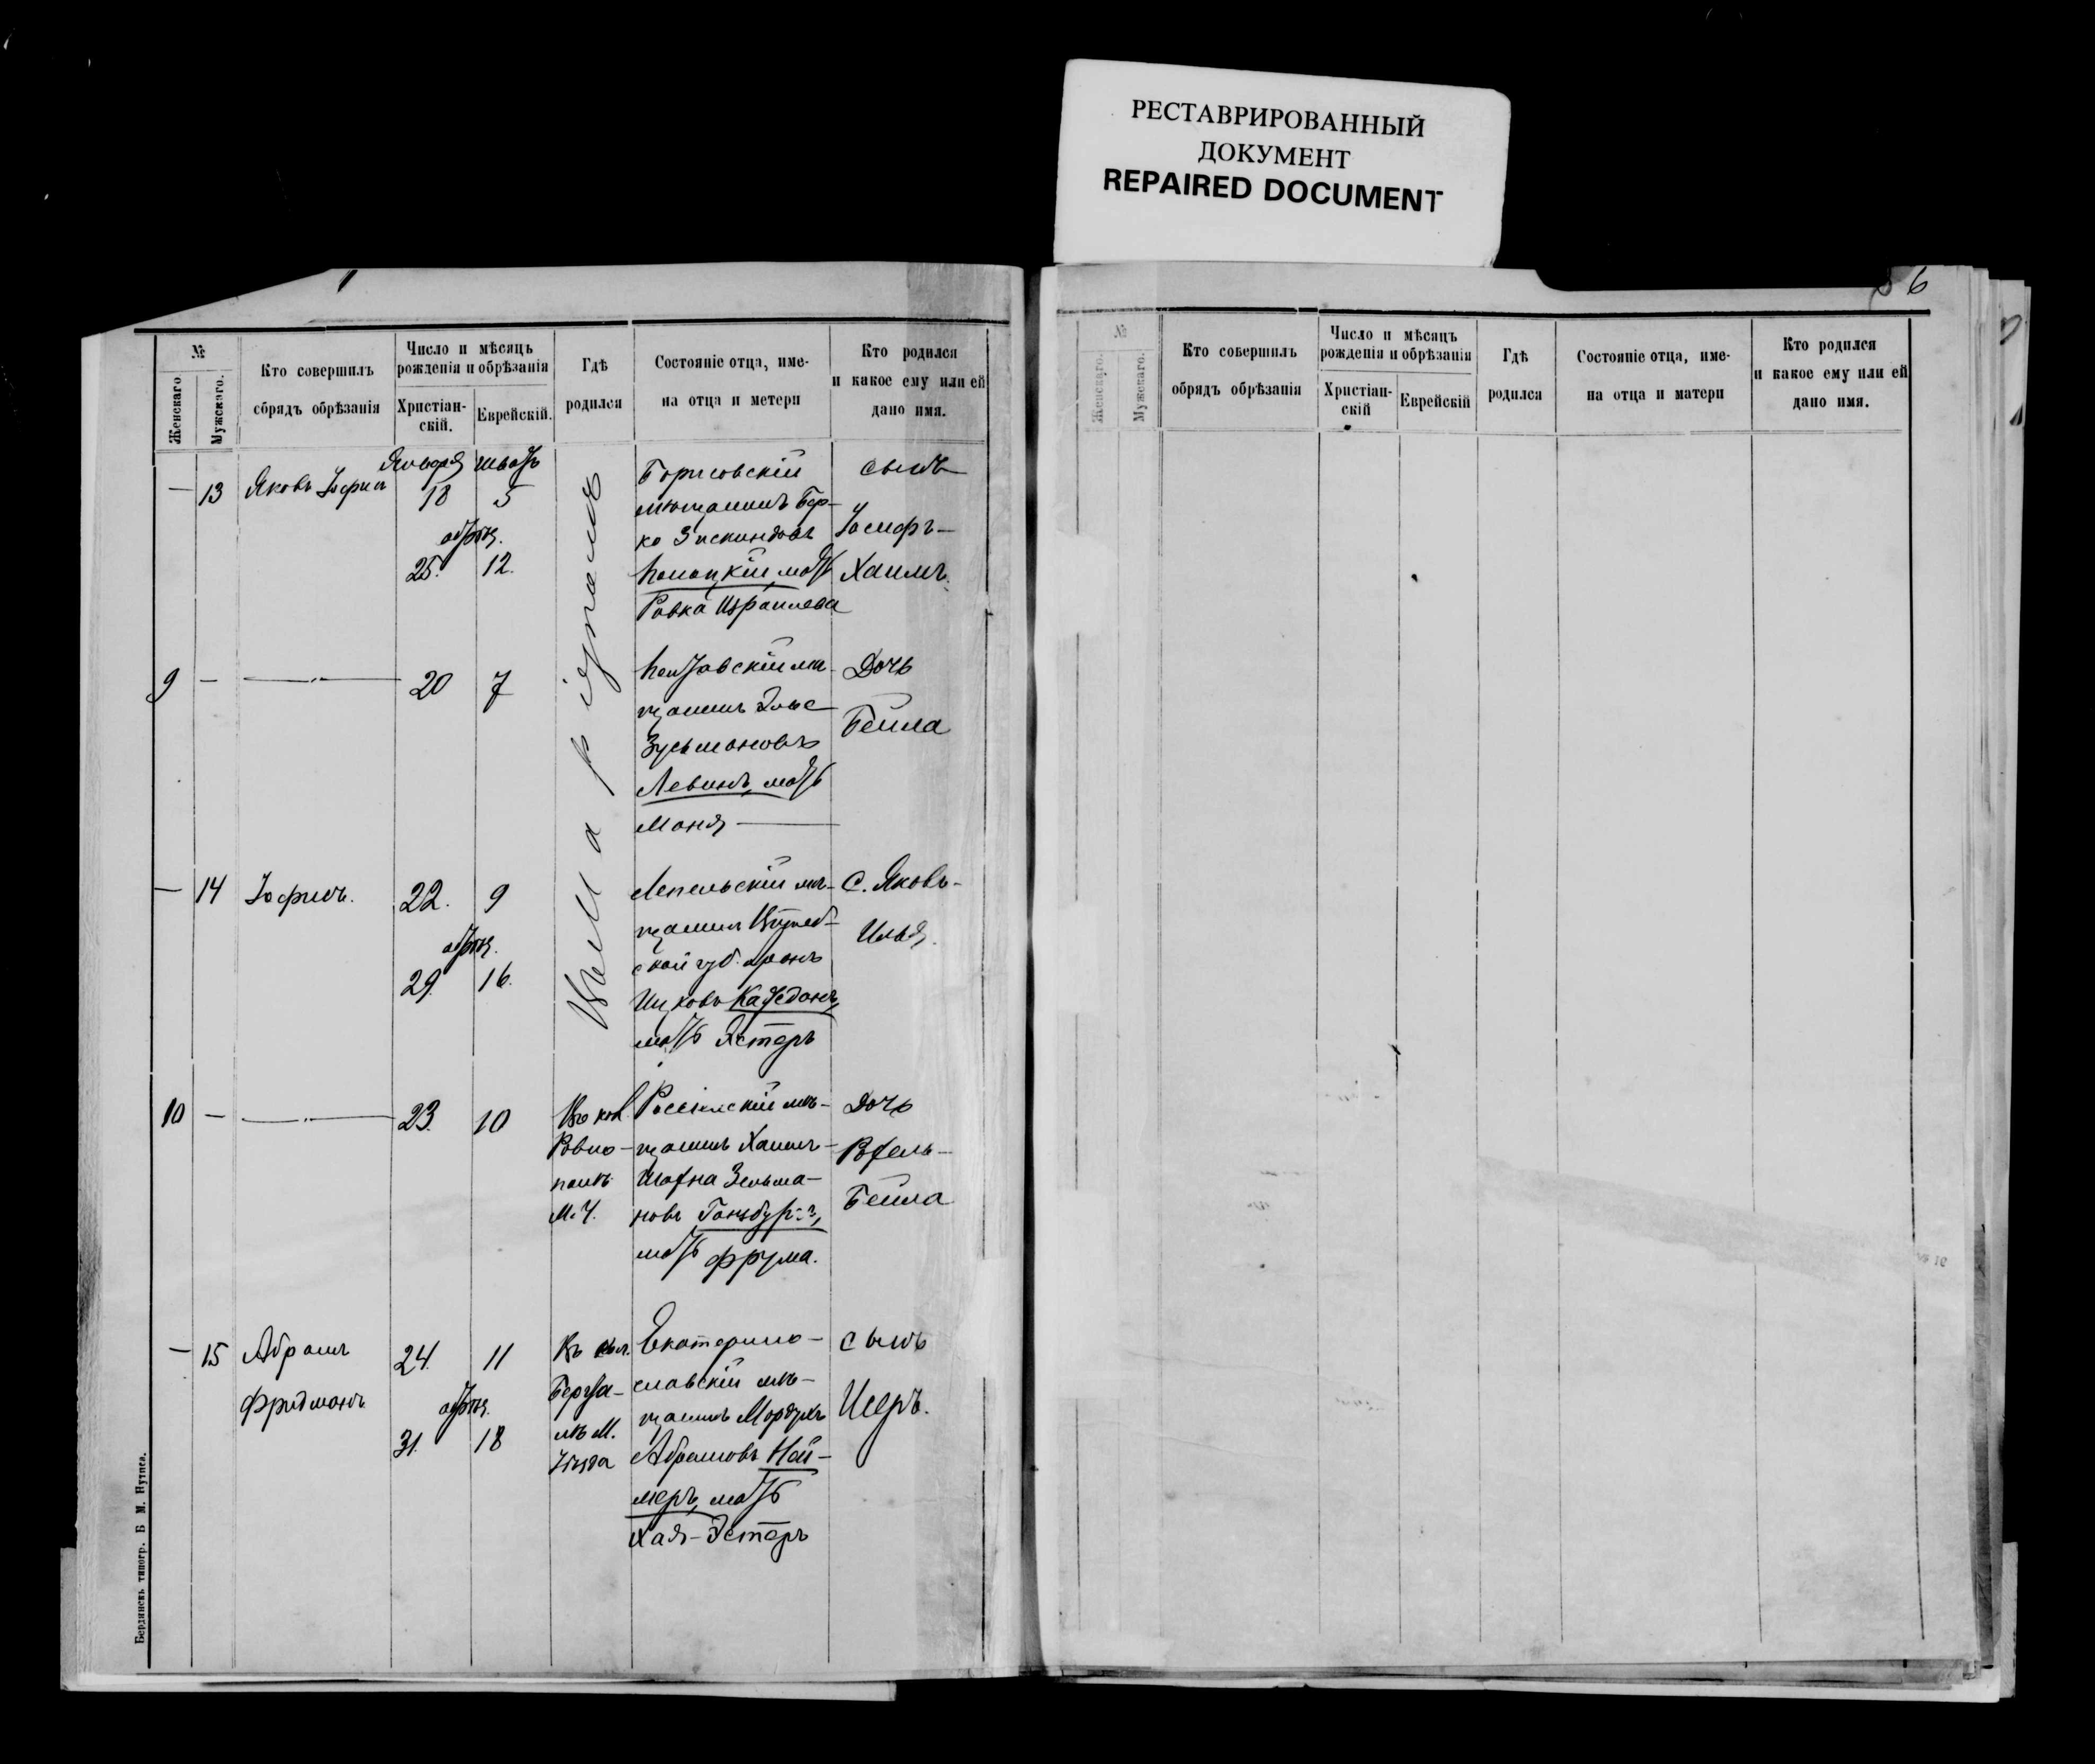 РЕСТАВРИРОВАННЫЙ
ДОКУМЕНТ
REPAIRED DOCUMENT
6
№
Женскаго
Мужскаго.
Кто совершилъ
обрядъ обрѣзанія
Число и мѣсяцъ
рожденія и обрѣзанія
Христіан-
скій.
Еврейскій.
Гдѣ
родился
Состояніе отца, име-
на отца и метери
Кто родился
и какое ему или ей
дано имя.
— 13 Яковъ Іофинъ
Января Шватъ
18 5
обрѣз.
25. 12.
Борисовскій
мѣщанинъ Бер-
ко Зискиндовъ
мать
Ривка Израилева
сынъ
Іосифъ-
Хаимъ.
9 — —
20 7
мѣ-
щанинъ
Зусьмановъ
Левинъ, мать
Маня —
Дочь
Бейла
— 14 Іофинъ.
22. 9
обрѣз.
29. 16.
Лепельскій мѣ-
щанинъ Витеб-
ской губ. Аронъ
Ицковъ
мать Эстеръ
С. Яковъ-
Илья.
10 — —
23. 10
Въ кол.
Ровно-
полѣ
М. У.
Россіенскій мѣ-
щанинъ Хаимъ-
Зельма-
новъ
мать Фрума.
Дочь
Бейла
— 15 Абрамъ
Фридманъ
24. 11
обрѣз.
31. 18
Въ кол.
М.
Уѣзда
Екатерино-
славскій мѣ-
щанинъ Мордухъ
Абрамовъ Най-
меръ, мать
Хая-Эстеръ
сынъ
Исеръ.
Бердянскъ типогр. Б. М. Нутиса.
№
Женскаго.
Мужскаго.
Кто совершилъ
обрядъ обрѣзанія
Число и мѣсяцъ
рожденія и обрѣзанія
Христіан-
скій
Еврейскій
Гдѣ
родился
Состояніе отца, име-
на отца и матери
Кто родился
и какое ему или ей
дано имя.